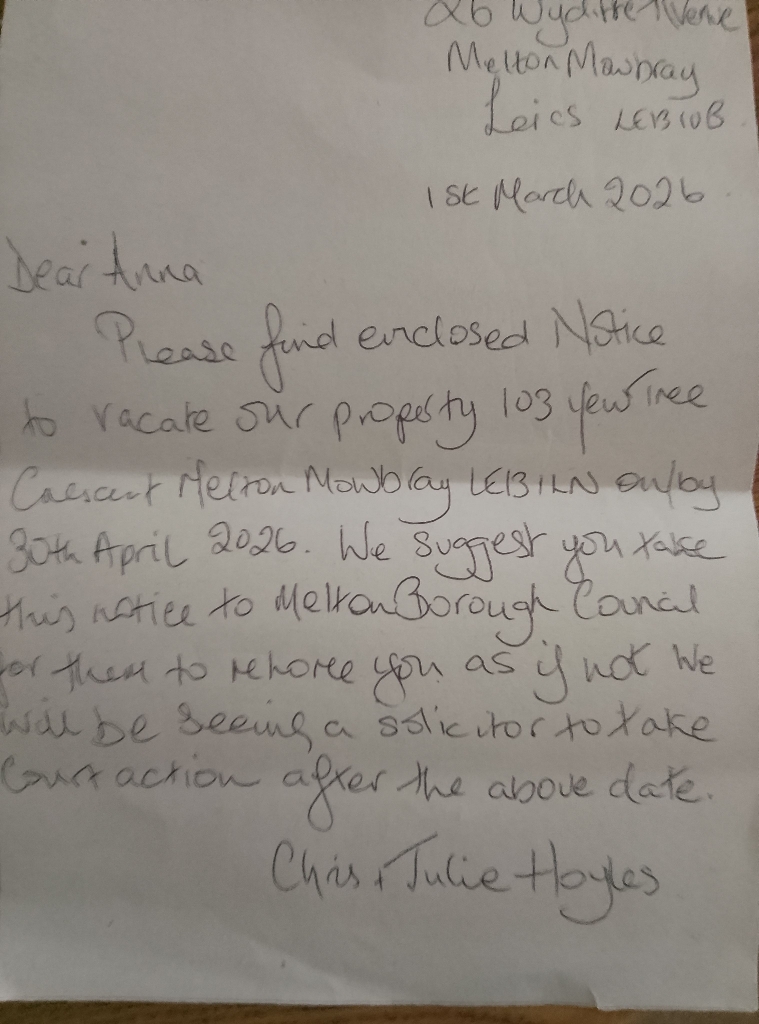 26 Wycliffe Avenue
Melton Mowbray
Leics LE13 1OB
1st March 2026
Dear Anna
Please find enclosed Notice
to vacate our property 103 Yew Tree
Crescent Melton Mowbray LE13 1LN on/by
30th April 2026. We suggest you take
this notice to Melton Borough Council
for them to rehome you as if not we
will be seeing a solicitor to take
Court action after the above date.
Chris & Julie Hoyles